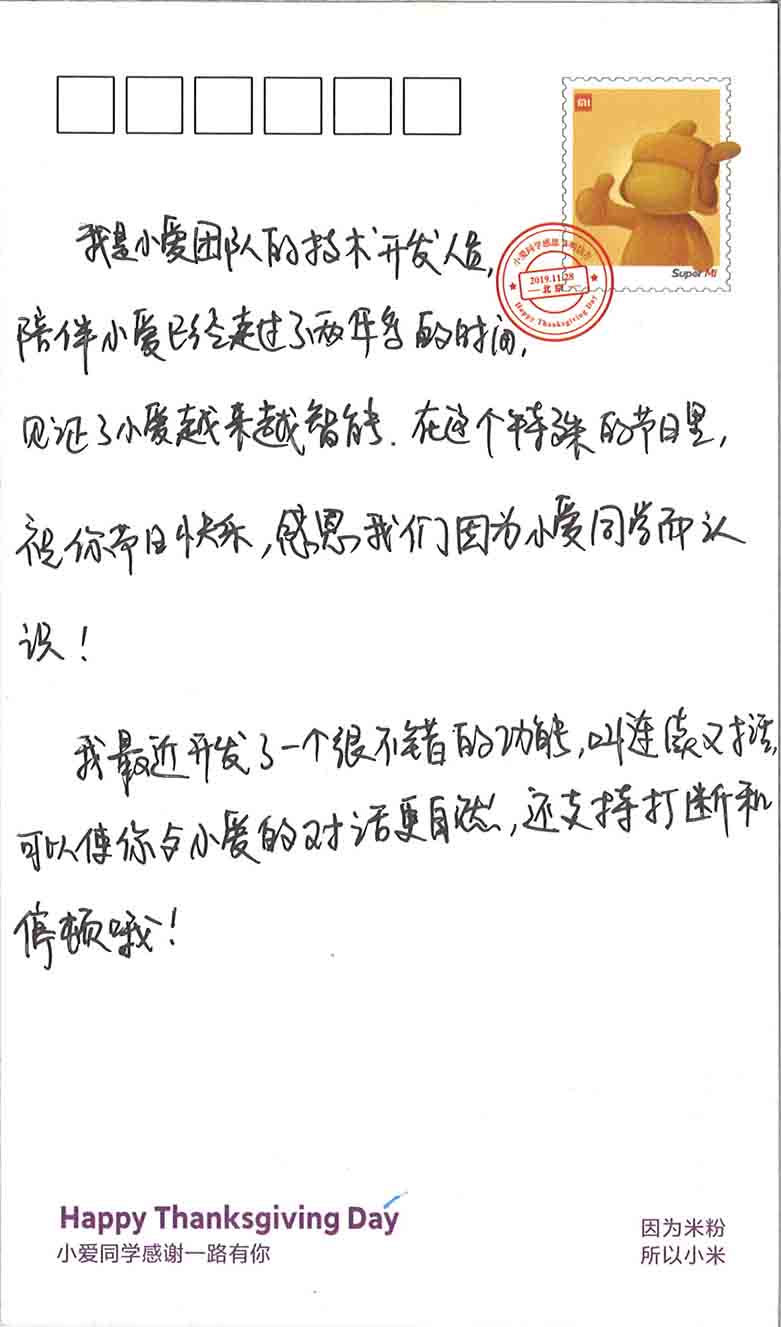 MI
Super MI
2019.11.28
北京
Happy Thanksgiving Day
我是小爱团队的技术开发人员，
陪伴小爱已经走过了两年多的时间，
见证了小爱越来越智能. 在这个特殊的节日里，
祝你节日快乐，感恩我们因为小爱同学而认
识！
我最近开发了一个很不错的功能，叫连续对话，
可以使你与小爱的对话更自然，还支持打断和
停顿哦！
Happy Thanksgiving Day
小爱同学感谢一路有你
因为米粉
所以小米